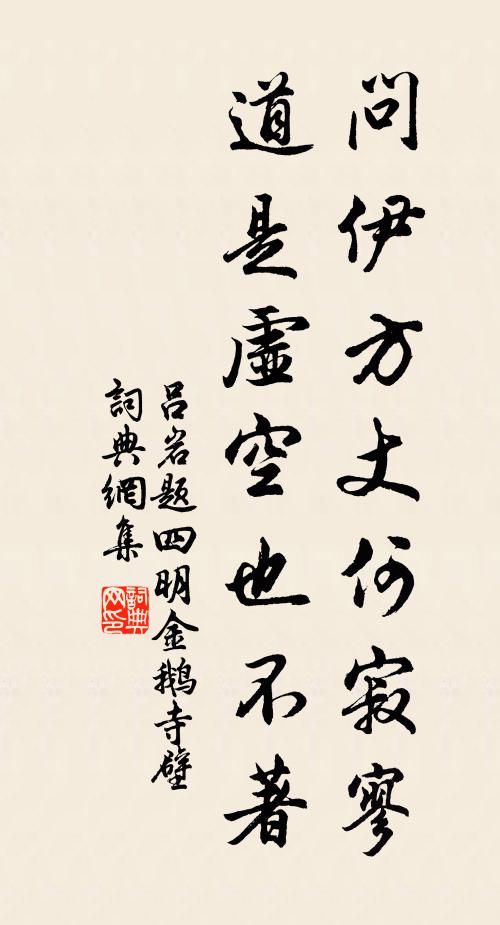 問伊方丈何寂寥
道是虛空也不著
呂岩題四明金鵝寺壁
詞典網集
詞典网印